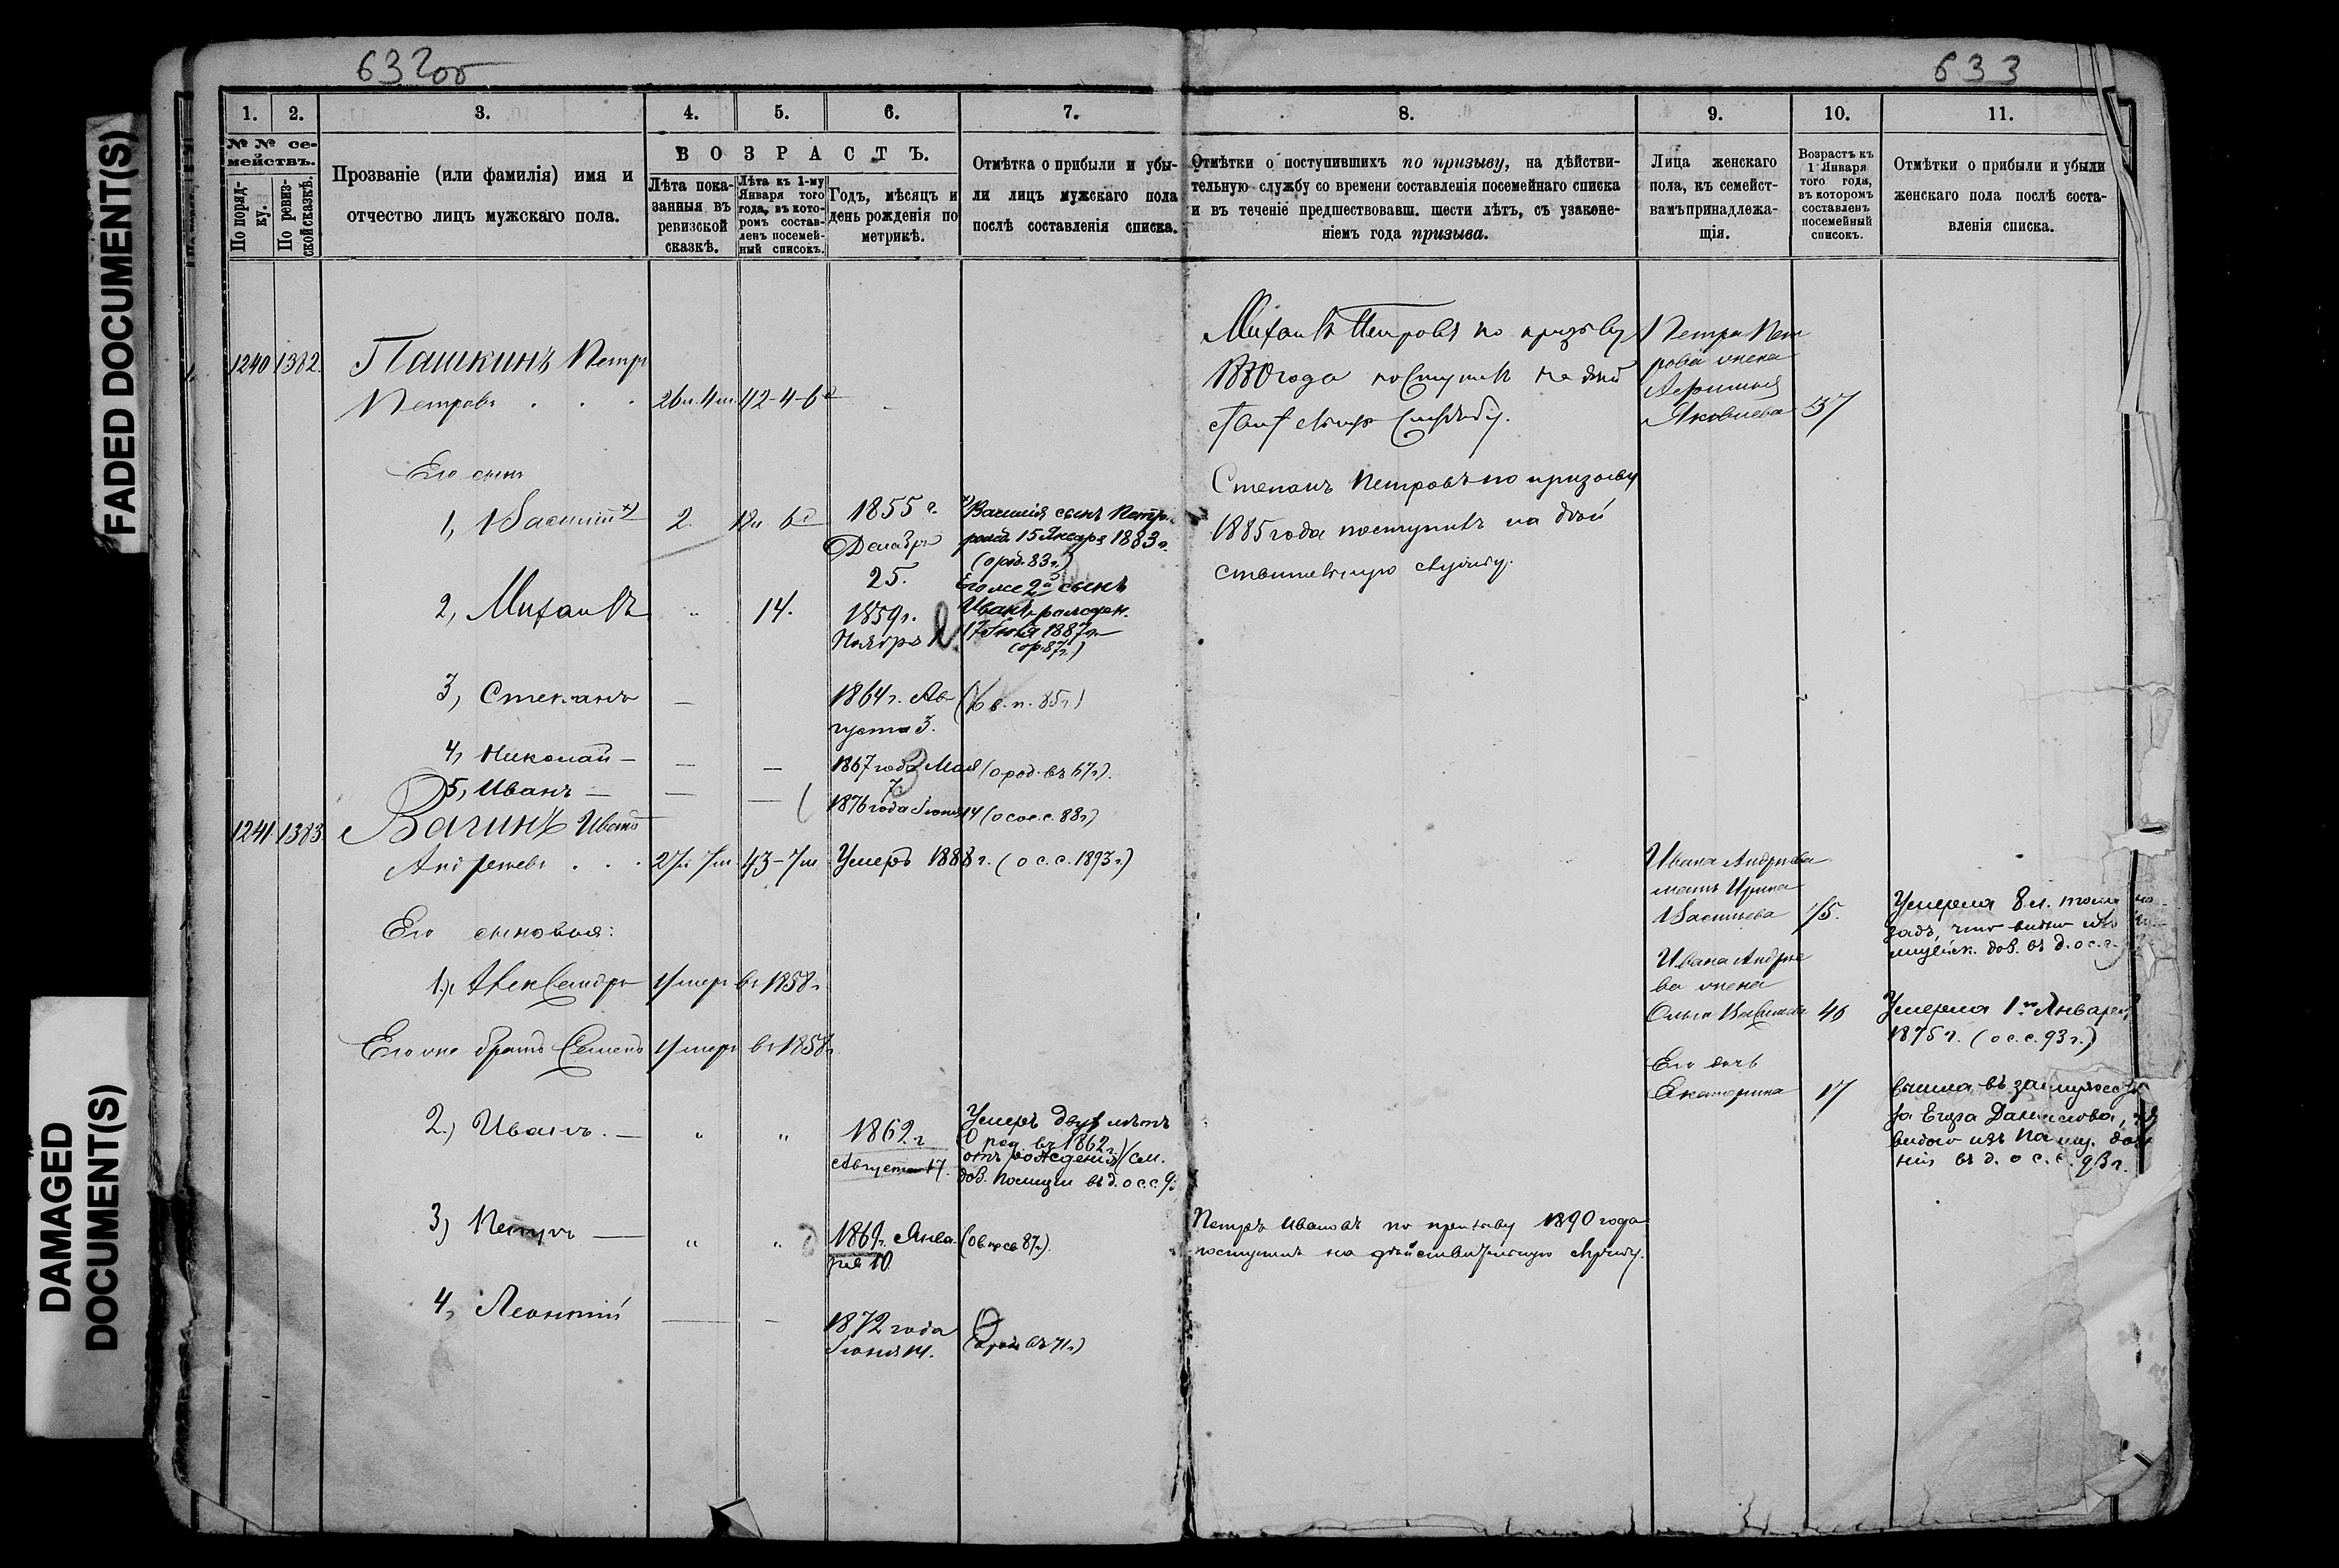 632об
633
FADED DOCUMENT(S)
DAMAGED
DOCUMENT(S)
1. 2. 3. 4. 5. 6. 7. 8. 9. 10. 11.
№ № се-
мействъ.
По поряд-
ку.
По ревиз-
ской сказкѣ.
Прозваніе (или фамилія) имя и
отчество лицъ мужскаго пола.
ВОЗРАСТЪ.
Лѣта пока-
занныя въ
ревизской
сказкѣ.
Лѣта къ 1-му
Января того
года, въ кото-
ромъ состав-
ленъ посемей-
ный списокъ.
Годъ, мѣсяцъ и
день рожденія по
метрикѣ.
Отмѣтка о прибыли и убы-
ли лицъ мужскаго пола
послѣ составленія списка.
Отмѣтки о поступившихъ по призыву, на дѣйстви-
тельную службу со времени составленія посемейнаго списка
и въ теченіе предшествовавш. шести лѣтъ, съ узаконе-
ніемъ года призыва.
Лица женскаго
пола, къ семейст-
вамъ принадлежа-
щія.
Возрастъ къ
1 Января
того года,
въ которомъ
составленъ
посемейный
списокъ.
Отмѣтки о прибыли и убыли
женскаго пола послѣ соста-
вленія списка.
1240 1382 Пашкинъ Петръ
Петровъ . . . 26л. 4м. 42-4-6
Его сынъ
1, Василій х) 2.
1855 г.
Декабря
25.
х) Василія сынъ Петръ
15 Января 1883 г.
(о род. 83 г.)
Его же 2й сынъ
Иванъ, рожден.
17 1887 г.
2, Михаилъ " 14.
1859 г.
Ноября
3, Степанъ —
1864 г. Ав-
густа 3.
85 г.)
4, Николай — — —
1867 года Мая
7.
(о род. въ 67 г.).
5, Иванъ — — —
1876 года Іюня 14 88 г.)
Михаилъ Петровъ по призыву
1880 года поступилъ на дѣй
службу.
Степанъ Петровъ по призыву
1885 года поступилъ на дѣй
ствительную службу.
Петра Пет
рова жена
Яковлева 37
1241 1383 Вагинъ Иванъ
Андреевъ . . . 27л. 7м. 43-7м Умеръ 1888 г. (о с. с. 1893 г.)
Его сыновья:
1.) Александръ Умеръ въ 1858 г.
Его же братъ Семенъ Умеръ въ 1858 г.
2.) Иванъ. — " "
1862 г.
Августа 17.
Умеръ двухъ лѣтъ
О род. въ 1862 г.
отъ рожденія (см.
дов. полиціи въ д. о с. с. 9
3) Петръ — " "
1869 г. Янва-
ря 10.
4, Леонтій — -
1872 года
Іюня 14.
Петръ Ивановъ по призыву 1890 года
поступилъ на дѣйствительную службу.
Ивана Андреева
мать Ирина
Васильева 75.
Умерла 8 л. тому
задъ, что видно изъ
дов. въ д. о с. с.
Ивана Андрее
ва жена
Ольга Васильева 46
Умерла 1го Января
(о с. с. 93 г.)
Его дочь
Екатерина 17
вышла въ замужес
за Егора Данилова,
видно изъ
въ д. о с. с. 93 г.